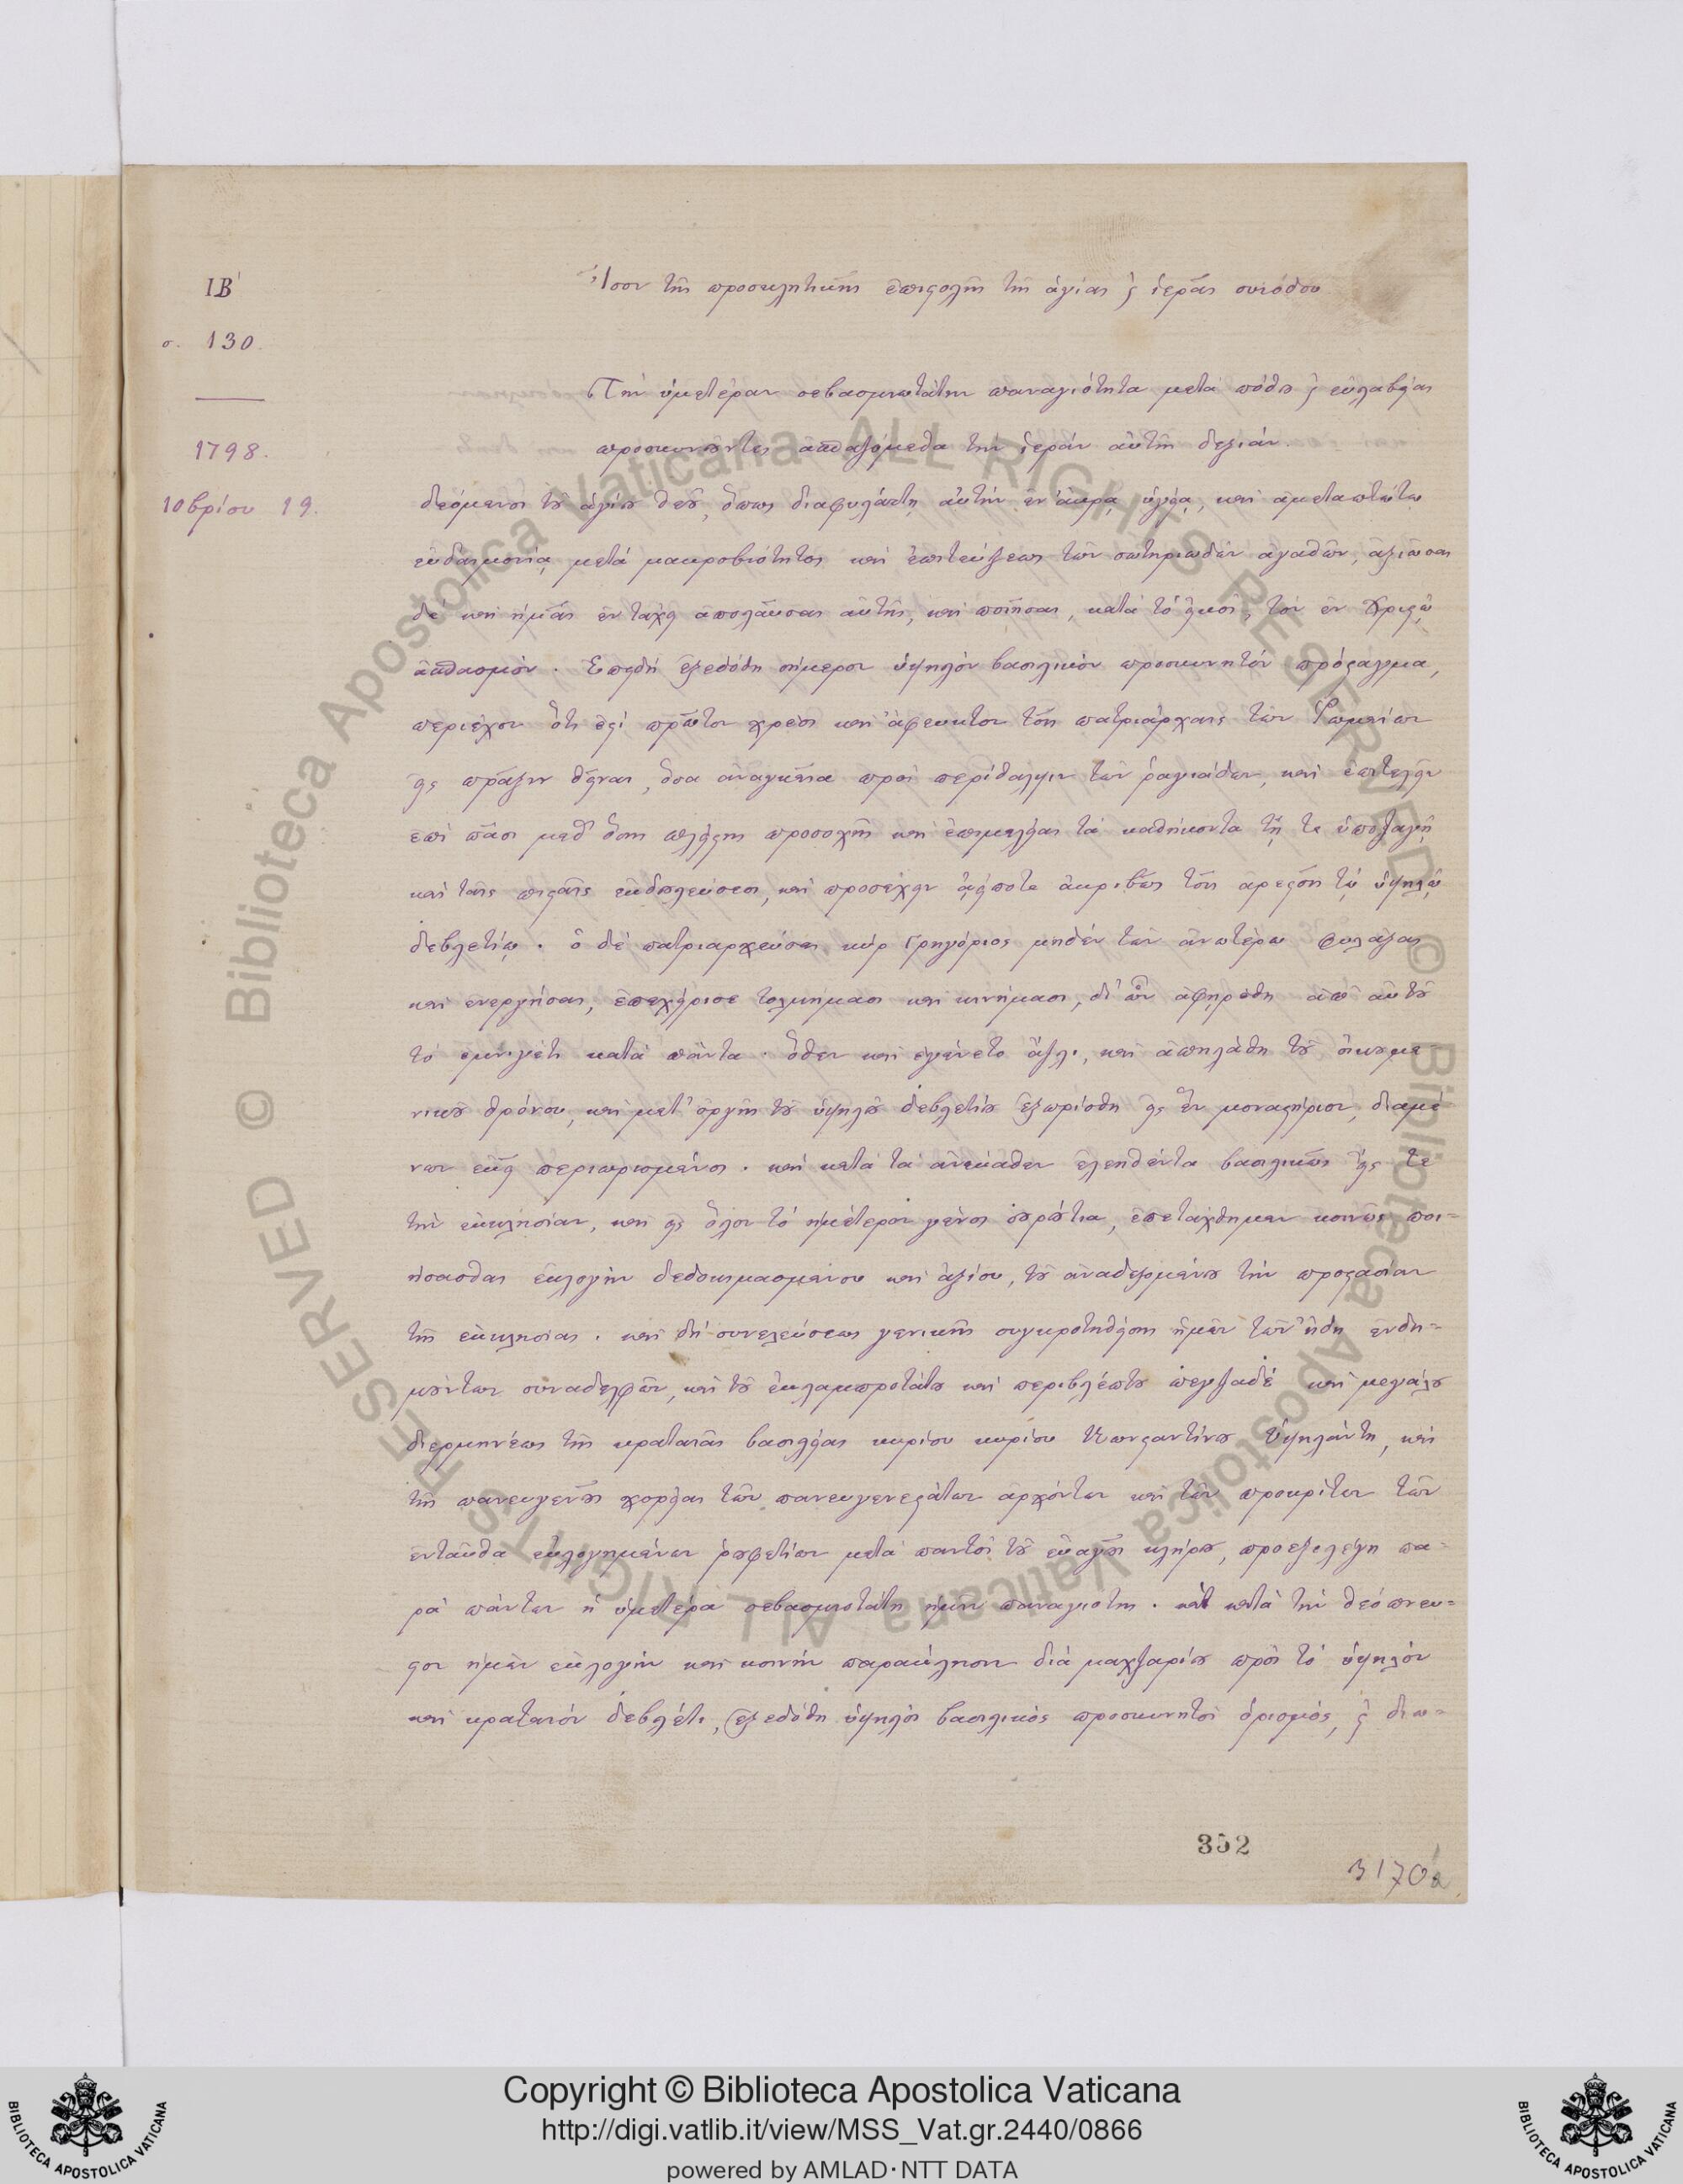 ΙΒ΄
σ. 130.
1798.
10βρίου 19.
Ἴσον τῆς προσκλητικῆς ἐπιστολῆς τῆς ἁγίας ϗ ἱερᾶς συνόδου
Τὴν ὑμετέραν σεβασμιωτάτην παναγιότητα μετὰ πόθου ϗ εὐλαβείας
προσκυνοῦντες ἀσπαζόμεθα τὴν ἱερὰν αὐτῆς δεξιάν.
δεόμενοι τοῦ ἁγίου θεοῦ, ὅπως διαφυλάττῃ αὐτὴν ἐν ἄκρᾳ ὑγείᾳ, καὶ ἀμεταπτώτῳ
εὐδαιμονίᾳ μετὰ μακροβιότητος καὶ ἐπιτεύξεως τῶν σωτηριωδῶν ἀγαθῶν, ἀξιῶσαι
δὲ καὶ ἡμᾶς ἐν τάχει ἀπολαῦσαι αὐτῆς, καὶ ποιῆσαι, κατὰ τὸ εἰκός, τὸν ἐν Χριστῷ
ἀσπασμόν. Ἐπειδὴ ἐξεδόθη σήμερον ὑψηλὸν βασιλικὸν προσκυνητὸν πρόσταγμα,
περιέχον ὅτι ἐστὶ πρῶτον χρέος καὶ ἄφευκτον τοῖς πατριάρχαις τῶν Ῥωμαίων
εἰς πρᾶξιν θεῖναι, ὅσα ἀναγκαῖα πρὸς περίθαλψιν τῶν ῥαγιάδων, καὶ ἐπιτελεῖν
ἐπὶ πᾶσι μεθ' ὅσης πλείστης προσοχῆς καὶ ἐπιμελείας τὰ καθήκοντα τῇ τε ὑποταγῇ
καὶ ταῖς πισταῖς ἐκδουλεύσεσι, καὶ προσέχειν ἀείποτε ἀκριβῶς τοῖς ἀρεστοῖς τῷ ὑψηλῷ
δεβλετίῳ. ὁ δὲ πατριαρχεύσας κὺρ Γρηγόριος μηδὲν τῶν ἀνωτέρω φυλάξας
καὶ ἐνεργήσας, ἐπεχείρισε τολμήμασι καὶ κινήμασι, δι' ὧν ἀφῃρέθη ἀπ' αὐτοῦ
τὸ ἐμνιγέτι κατὰ πάντα. ὅθεν καὶ ἐγένετο ἄζλι, καὶ ἀπηλάθη τοῦ οἰκουμε-
νικοῦ θρόνου, καὶ μετ' ὀργῆς τοῦ ὑψηλοῦ δεβλετίου ἐξωρίσθη εἰς ἓν μοναστήριον, διαμέ-
νων ἐκεῖ περιωρισμένος. καὶ κατὰ τὰ ἀνέκαθεν ἐλεηθέντα βασιλικῶς εἴς τε
τὴν ἐκκλησίαν, καὶ εἰς ὅλον τὸ ἡμέτερον γένος σουρούτια, ἐπετάχθημεν κοινῶς ποι-
ήσασθαι ἐκλογὴν δεδοκιμασμένου καὶ ἀξίου, τοῦ ἀναδεξομένου τὴν προστασίαν
τῆς ἐκκλησίας. καὶ δὴ συνελεύσεως γενικῆς συγκροτηθείσης ἡμῶν τῶν ἤδη ἐνδη-
μούντων συναδελφῶν, καὶ τοῦ ἐκλαμπροτάτου καὶ περιβλέπτου πεϊζαδὲ καὶ μεγάλου
διερμηνέως τῆς κραταιᾶς βασιλείας κυρίου κυρίου Κωνσταντίνου Ὑψηλάντη, καὶ
τῆς πανευγενοῦς χορείας τῶν πανευγενεστάτων ἀρχόντων καὶ τῶν προκρίτων τῶν
ἐνταῦθα εὐλογημένων ῥουφετίων μετὰ παντὸς τοῦ εὐαγοῦς κλήρου, προεξελέγη πα-
ρὰ πάντων ἡ ὑμετέρα σεβασμιωτάτη ἡμῖν παναγιότης. καὶ κατὰ τὴν θεόπνευ-
στον ἡμῶν ἐκλογὴν καὶ κοινὴν παράκλησιν διὰ μαχζαρίου πρὸς τὸ ὑψηλὸν
καὶ κραταιὸν δεβλέτι, ἐξεδόθη ὑψηλὸς βασιλικὸς προσκυνητὸς ὁρισμός, ϗ διω-
352
3170a
Copyright © Biblioteca Apostolica Vaticana
http://digi.vatlib.it/view/MSS_Vat.gr.2440/0866
powered by AMLAD·NTT DATA